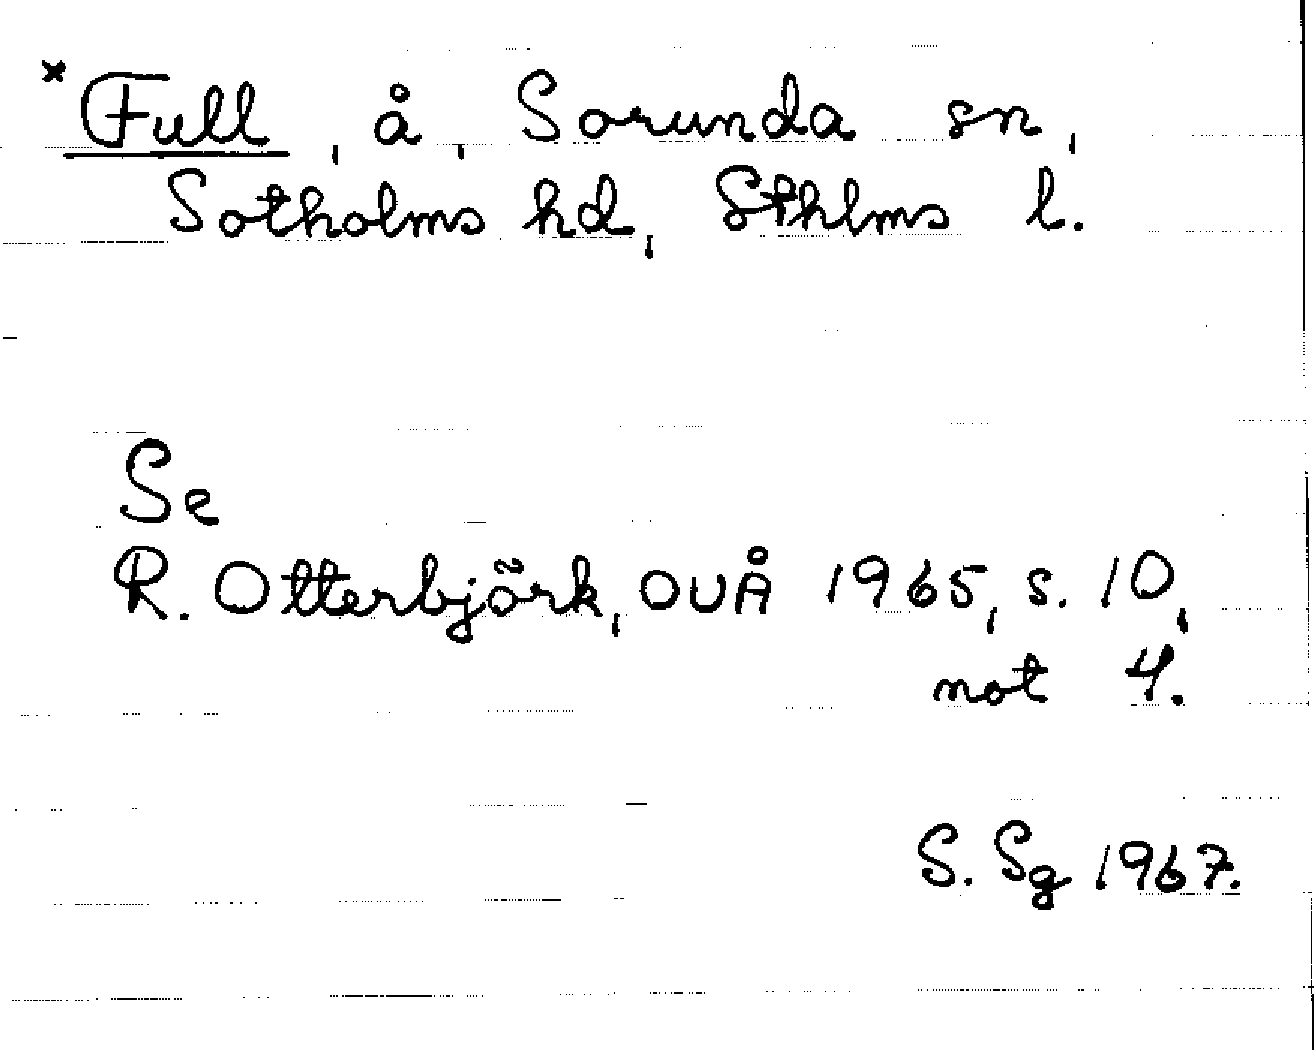 *Full, å, Sorunda sn,
Sotholms hd, Sthlms l.
Se
R. Otterbjörk, OUÅ 1965, s. 10,
not 4.
S. Sg 1967.